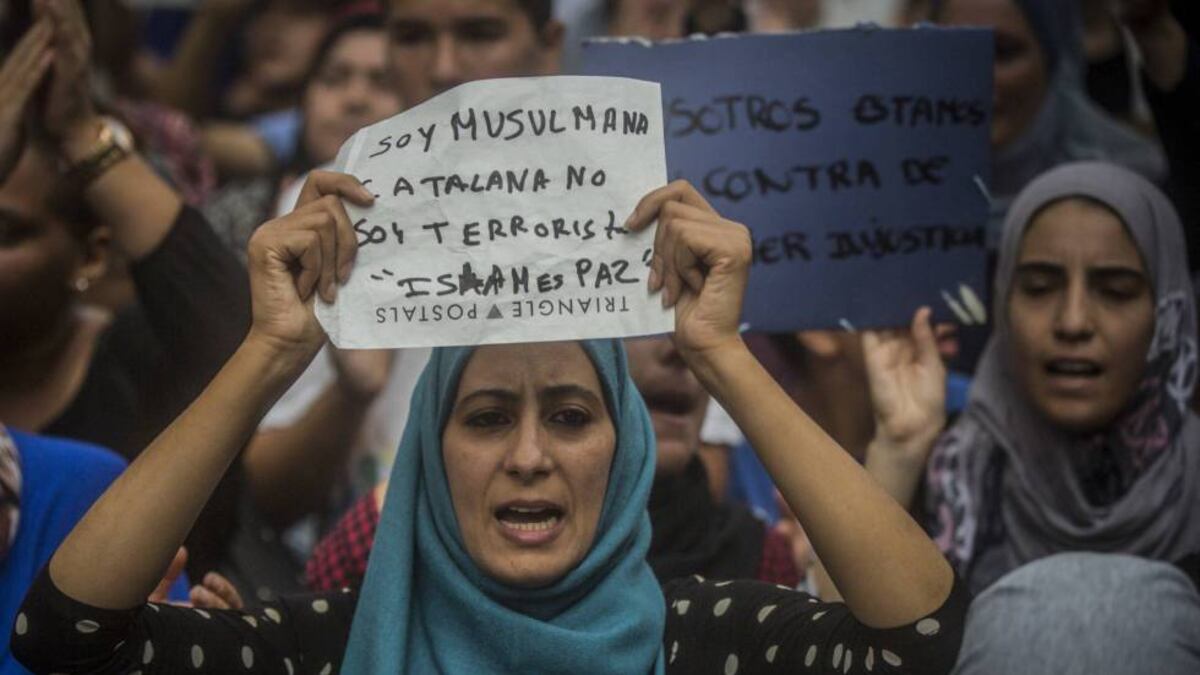 SOY MUSULMANA
CATALANA NO
SOY TERRORISTA
"ISLAM ES PAZ"
TRIANGLE ▲ POSTALS
SOTROS ESTAMOS
CONTRA DE
INJUSTICIA